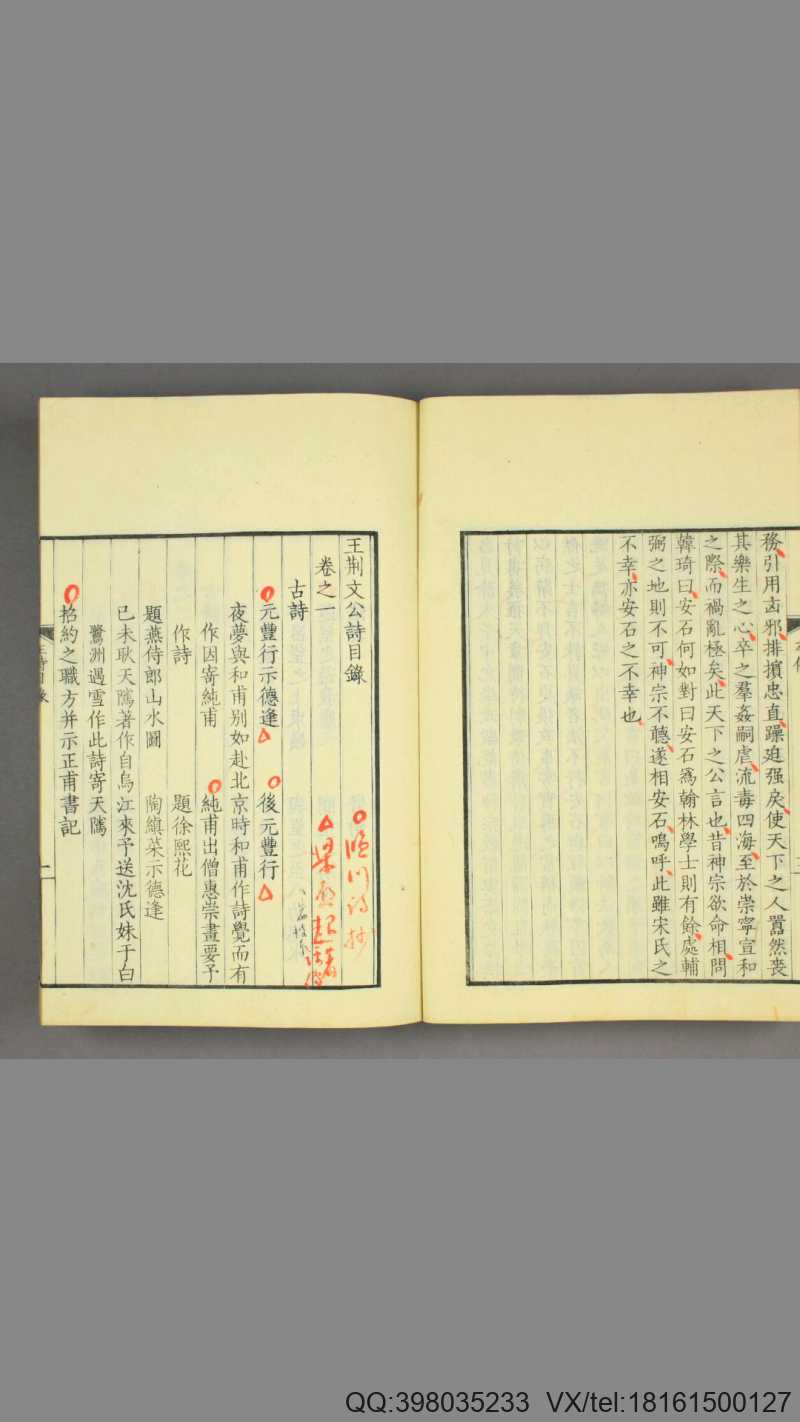 務引用凶邪排擯忠直躁迫强戾使天下之人囂然喪
其樂生之心卒之羣姦嗣虐流毒四海至於崇寧宣和
之際而禍亂極矣此天下之公言也昔神宗欲命相問
韓琦曰安石何如對曰安石爲翰林學士則有餘處輔
弼之地則不可神宗不聽遂相安石嗚呼此雖宋氏之
不幸亦安石之不幸也
王荆文公詩目錄
○臨川詩抄
卷之一
△梁啟超
古詩
○元豐行示德逢△
○後元豐行△
夜夢與和甫別如赴北京時和甫作詩覺而有
作因寄純甫
○純甫出僧惠崇畫要予
作詩
題徐熙花
題燕侍郎山水圖
陶縝菜示德逢
己未耿天騭著作自烏江來予送沈氏妹于白
鷺洲遇雪作此詩寄天騭
○招約之職方并示正甫書記
二
QQ:398035233 VX/tel:18161500127